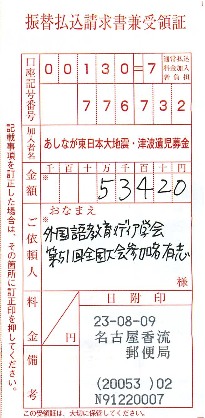 振替払込請求書兼受領証
口座記号番号
00130=7
通常払込料金加入者負担
776732
加入者名
あしなが東日本大地震・津波遺児募金
金額
千百十万千百十円
53420
ご依頼人
おなまえ
外国語教育メディア学会
第51回全国大会参加者有志
様
料金
円
備考
日附印
23-08-09
名古屋香流
郵便局
(20053)02
N91220007
記載事項を訂正した場合は、その箇所に訂正印を押してください。
この受領証は、大切に保管してください。